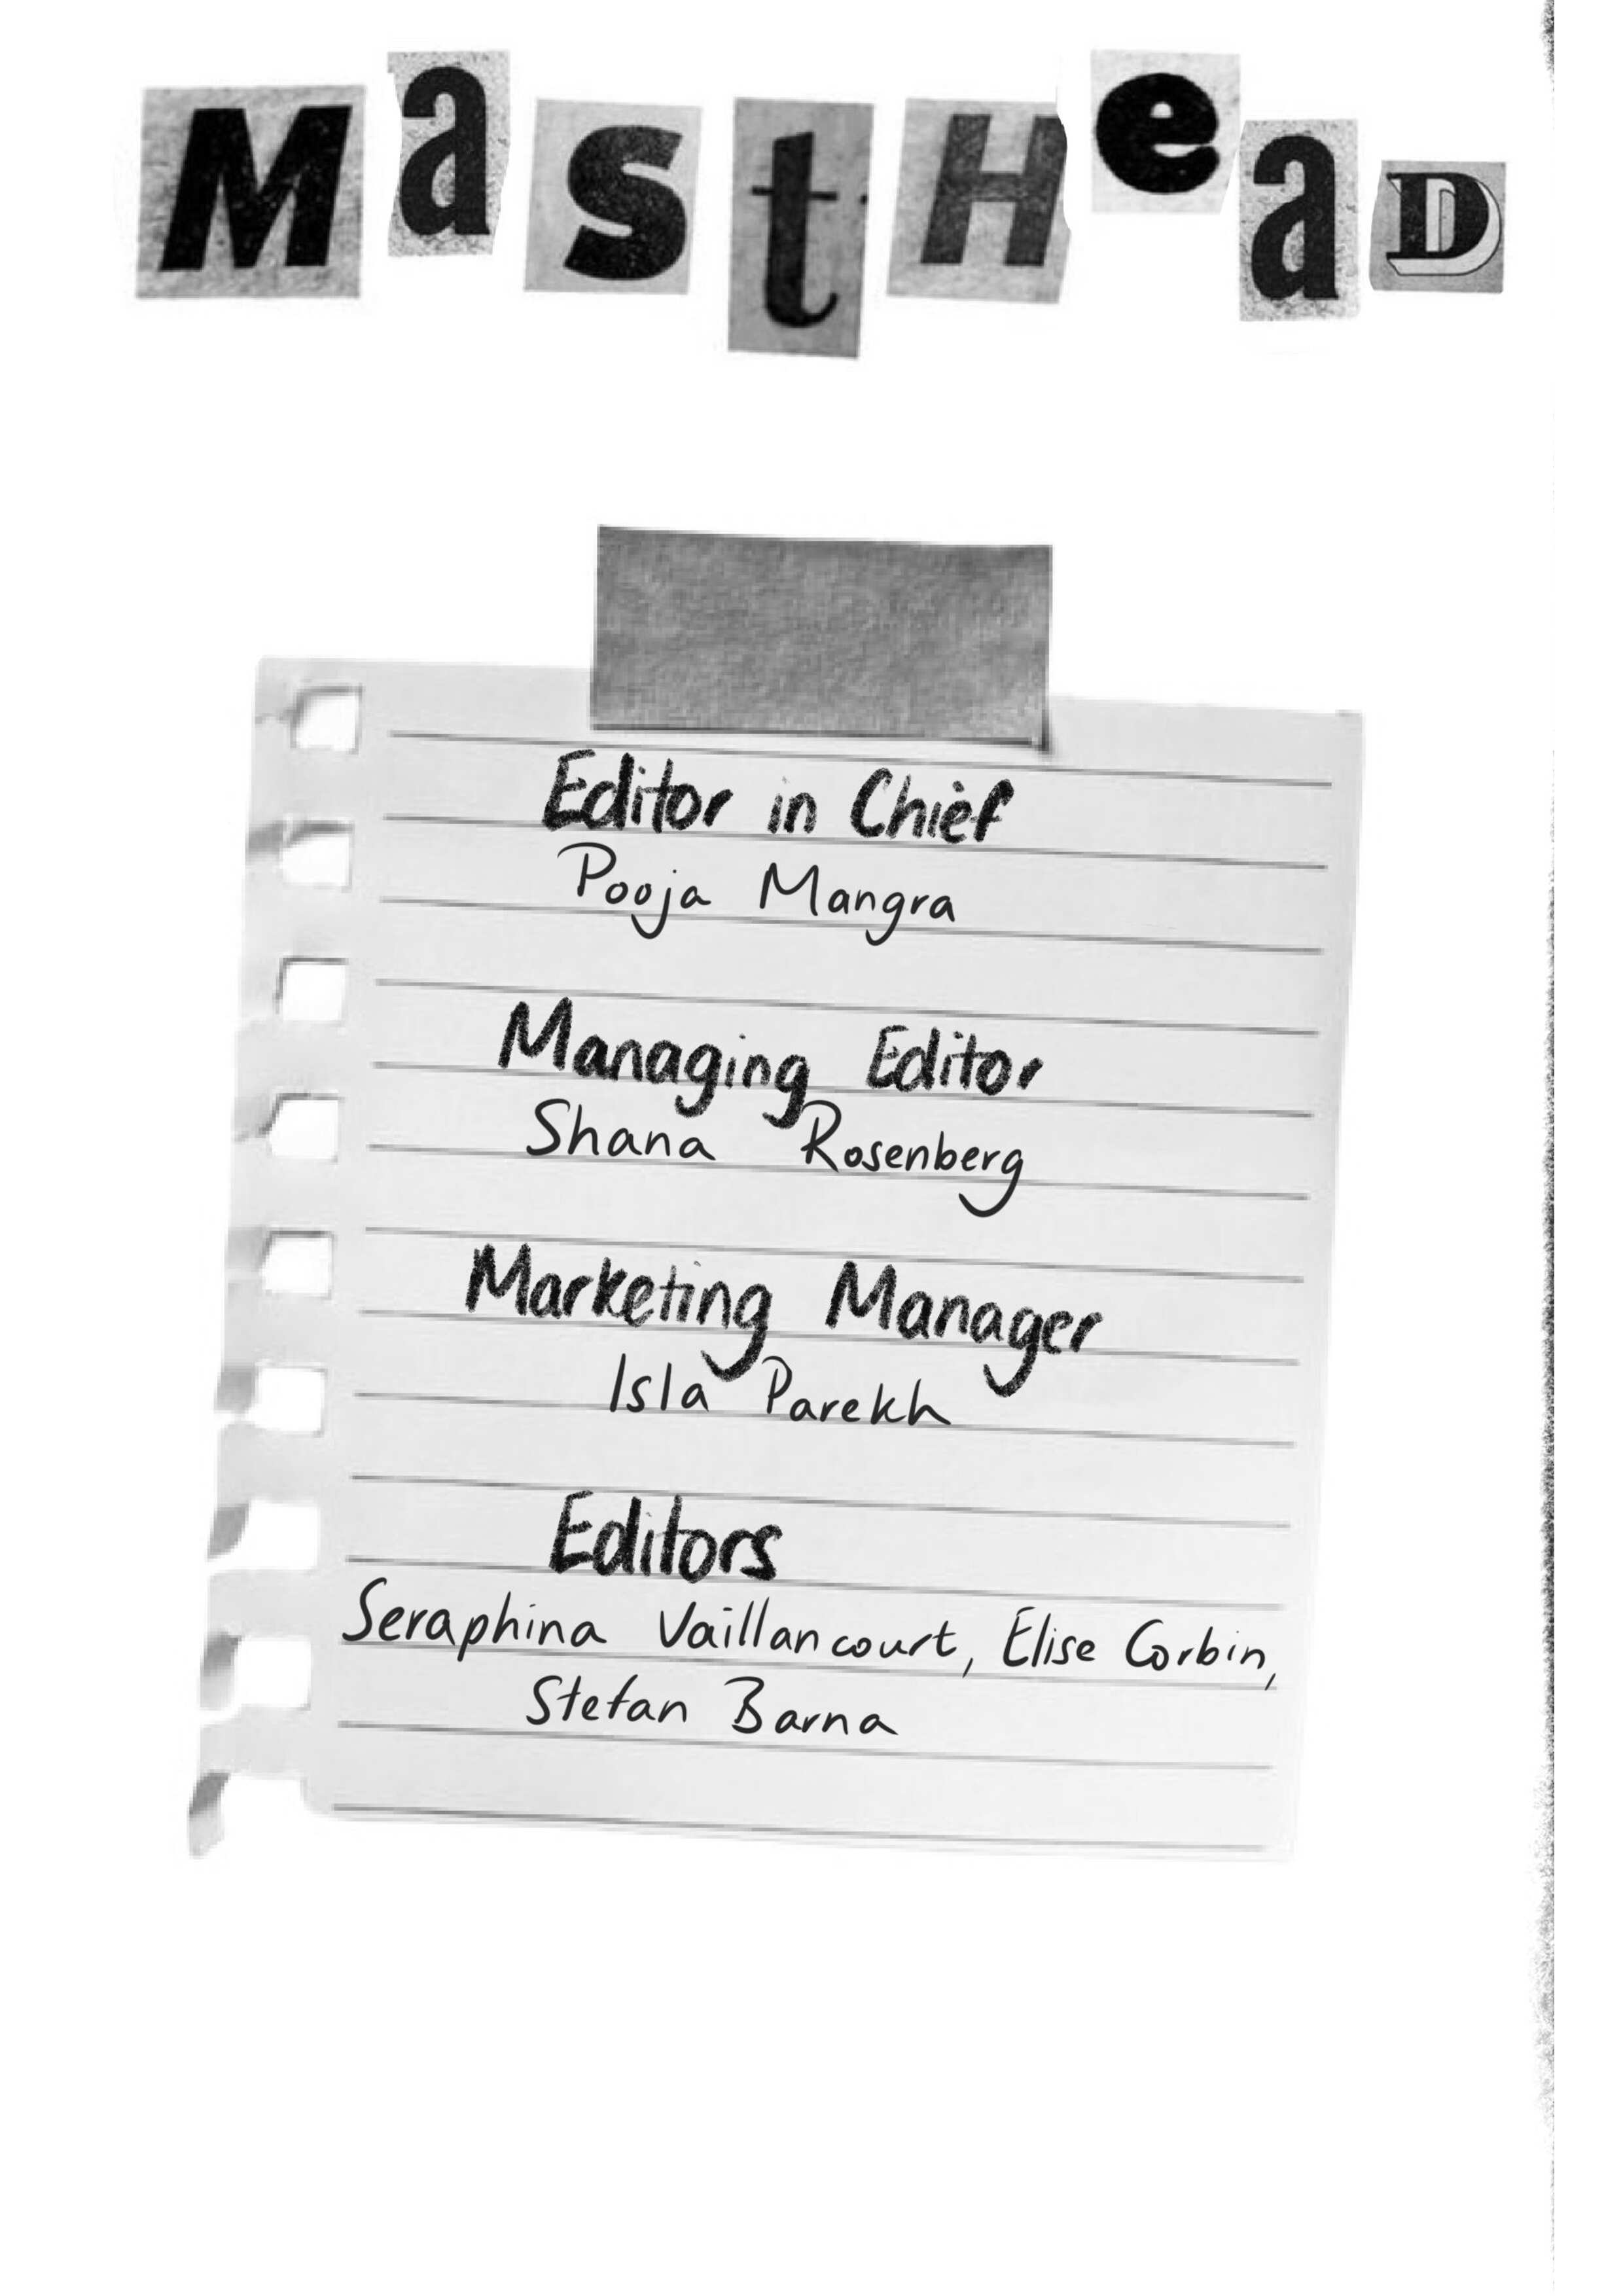 MastHeaD
Editor in Chief
Pooja Mangra
Managing Editor
Shana Rosenberg
Marketing Manager
Isla Parekh
Editors
Seraphina Vaillancourt, Elise Corbin,
Stefan Barna